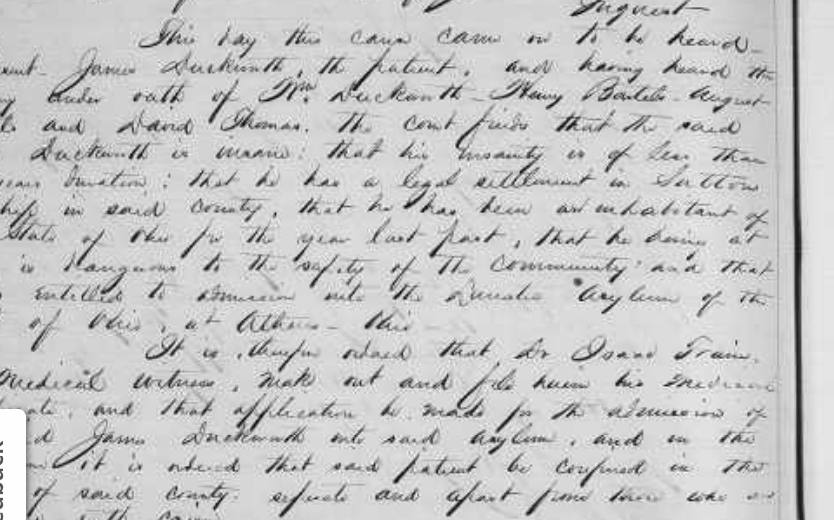 Inquest
This day this cause came on to be heard -
James Duckworth, the patient, and having heard the
under oath of Wm Duckworth - Henry Bartels - August
and David Thomas. The court finds that the said
Duckworth is insane: that his insanity is of less than
duration; that he has a legal settlement in Sutton
in said county, that he has been an inhabitant of
State of Ohio for the year last past, that he being at
is dangerous to the safety of the community and that
entitled to admission into the Lunatic Asylum of the
of Ohio, at Athens - Ohio
It is therefore ordered that Dr Isaac Train,
Medical witness, make out and file herein his Medical
and that application be made for the admission of
James Duckworth into said asylum, and in the
it is ordered that said patient be confined in the
of said county separate and apart from those who